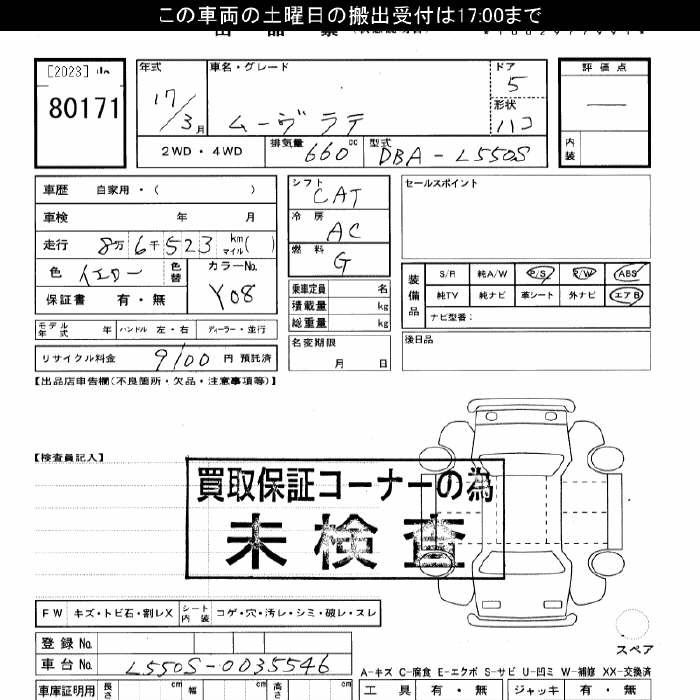 この車両の土曜日の搬出受付は17:00まで
[2023]
80171
年式
17/3月
車名・グレード
ムーヴ ラテ
ドア
5
形状
ハコ
評価点
内装
2WD・4WD
排気量 660cc
型式 DBA-L550S
車歴 自家用・( )
車検 年 月
走行 8万6千523 km マイル( )
色 イエロー
色替
カラーNo.
Y08
保証書 有・無
シフト
CAT
冷房
AC
燃料
G
セールスポイント
装備品
S/R 純A/W P/S P/W ABS
純TV 純ナビ 革シート 外ナビ エアB
ナビ型番:
乗車定員 名
積載量 kg
総重量 kg
モデル年式 年 ハンドル 左・右 ディーラー・並行
名変期限
月 日
後日品
リサイクル料金 9100 円 預託済
【出品店申告欄(不良箇所・欠品・注意事項等)】
【検査員記入】
買取保証コーナーの為
未検査
FW キズ・トビ石・割レX シート内装 コゲ・穴・汚レ・シミ・破レ・スレ
スペア
登録No.
車台No. L550S-0035546
A-キズ C-腐食 E-エクボ S-サビ U-凹ミ W-補修 XX-交換済
車庫証明用 長さ cm 幅 cm 高さ cm
工具 有・無 ジャッキ 有・無